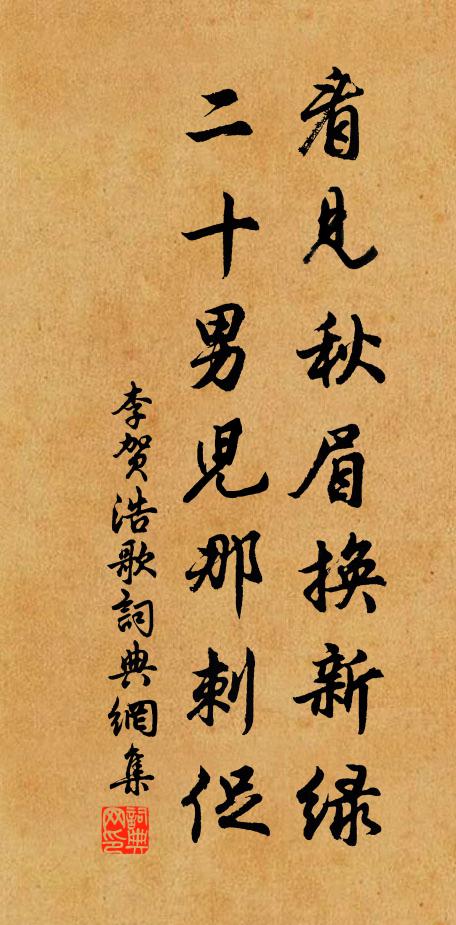 看見秋眉換新绿
二十男兒那刺促
李贺浩歌詞典網集
詞典网印